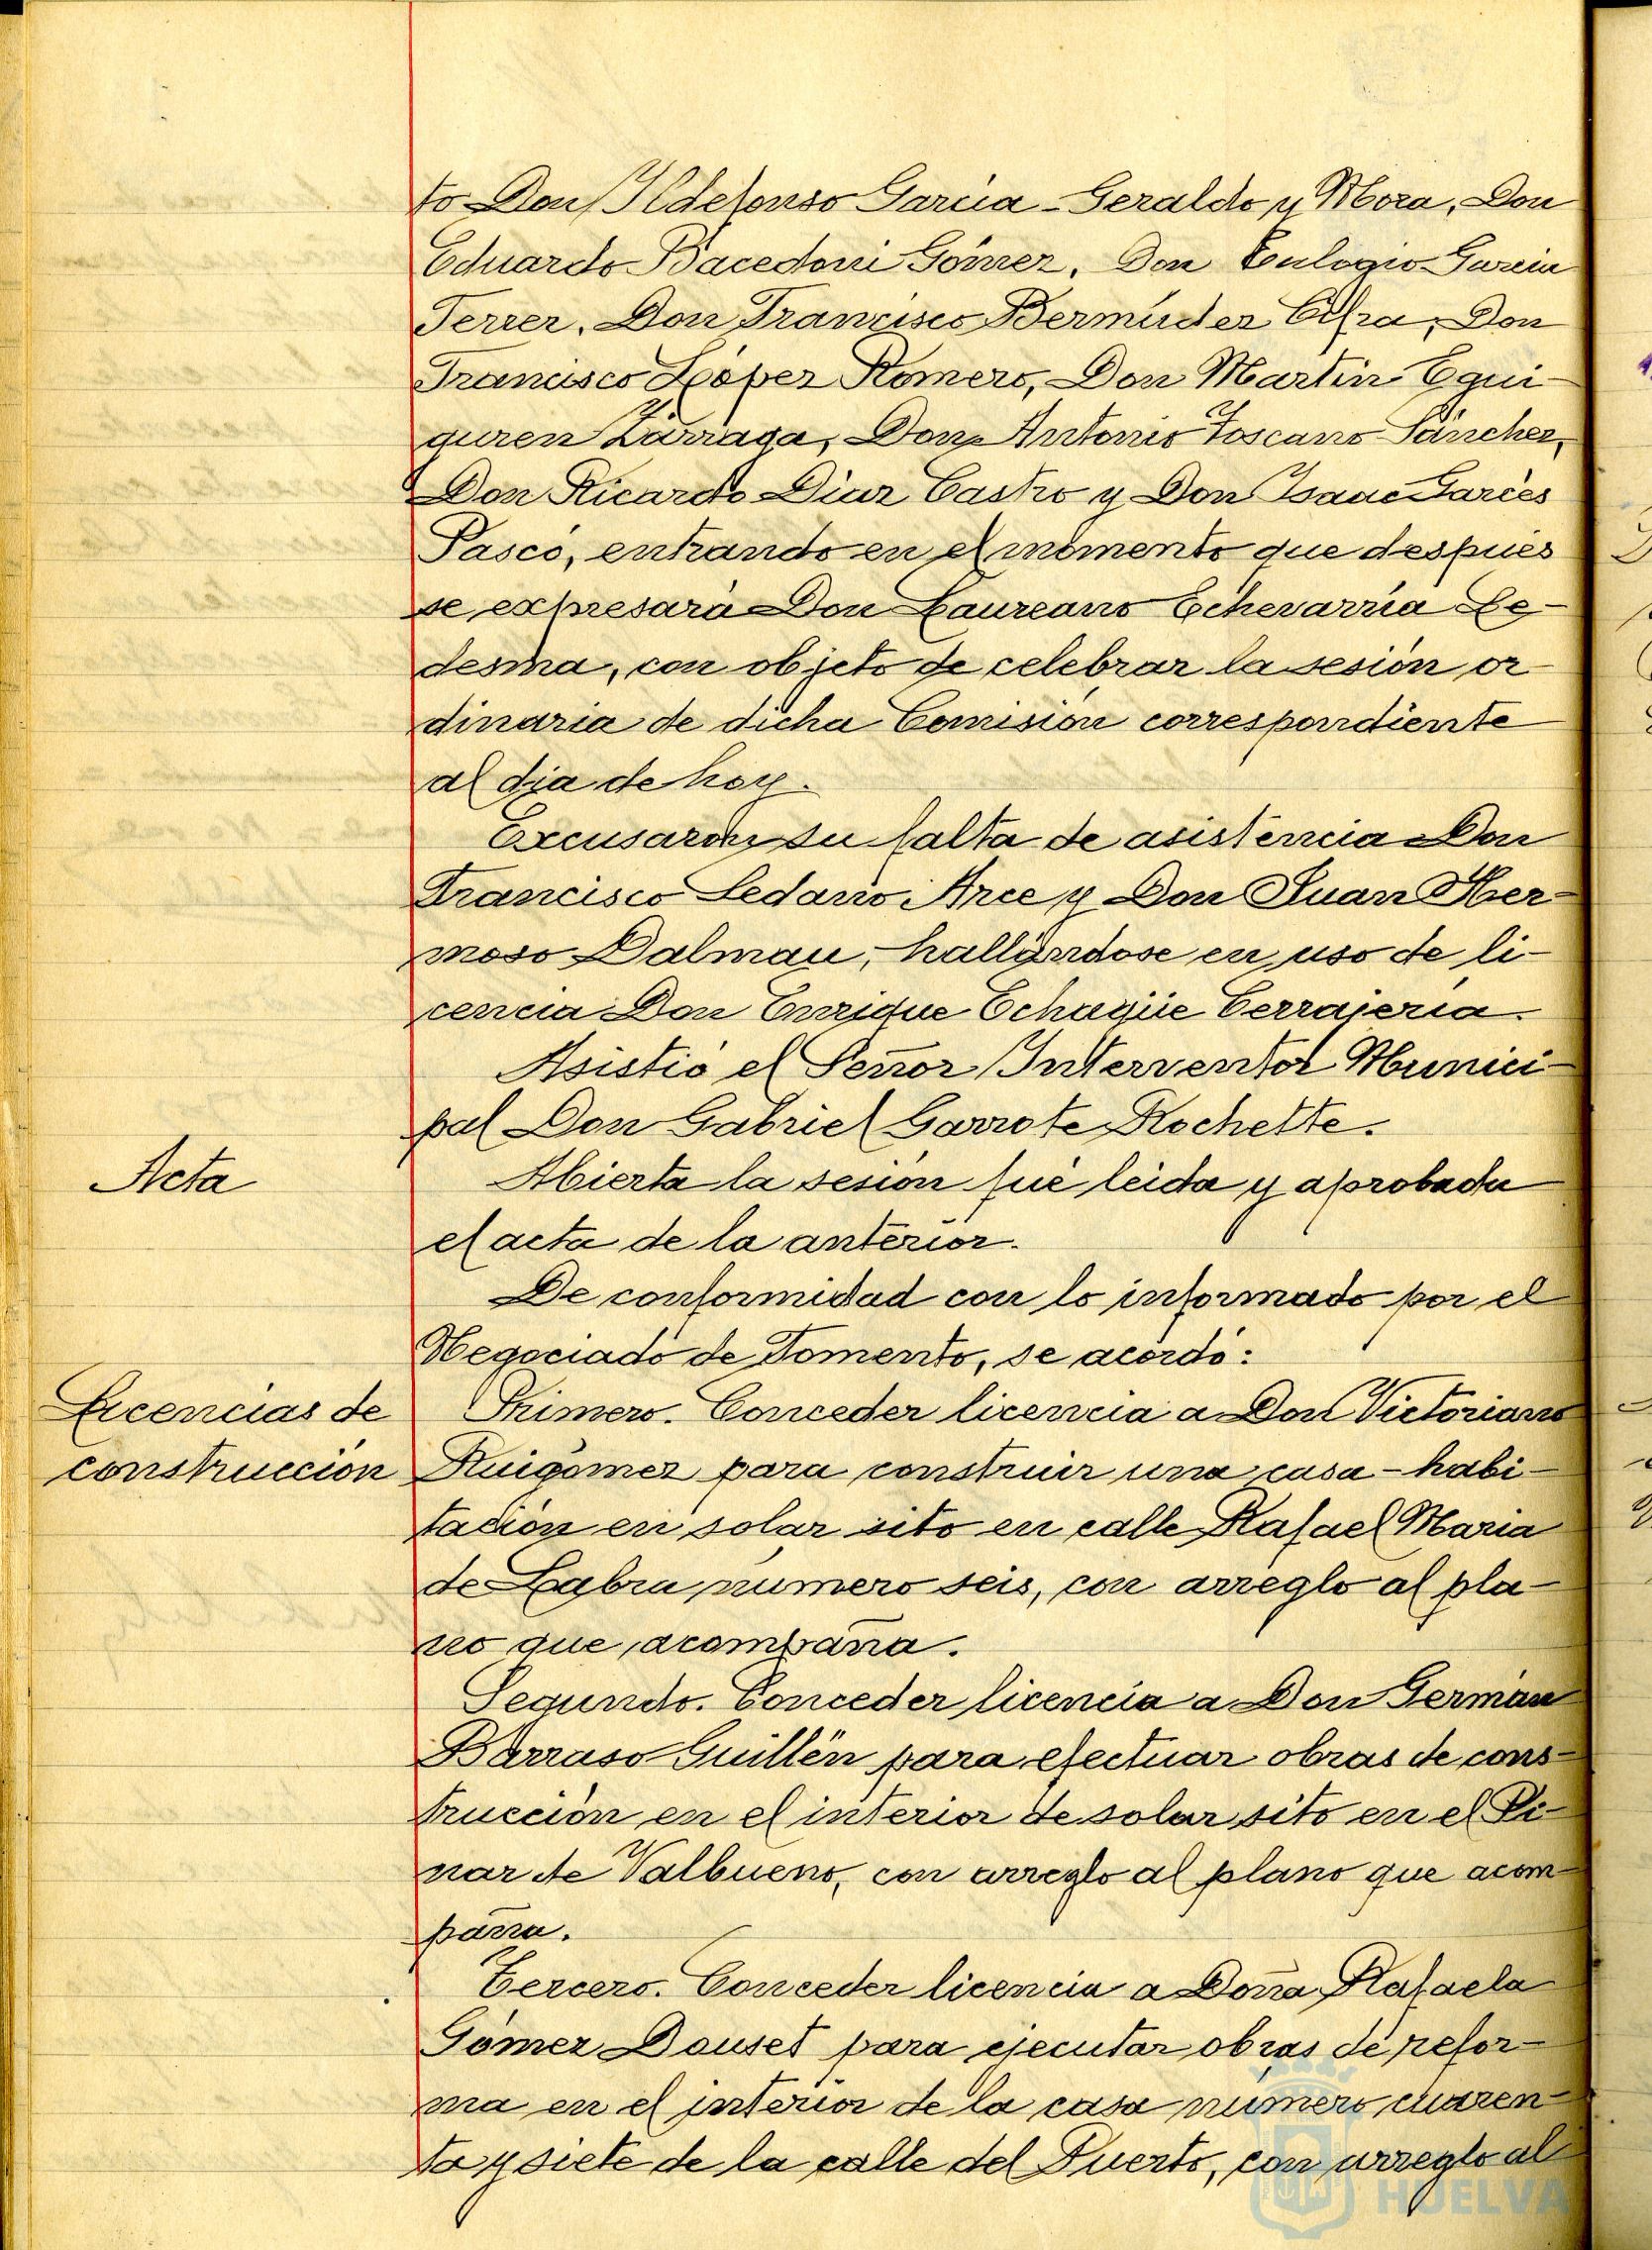 to Don Ildefonso García-Geraldo y Mora, Don
Eduardo Bacedoni Gómez, Don Eulogio García
Ferrer, Don Francisco Bermúdez Cifra, Don
Francisco López Romero, Don Martín Egui-
guren Zárraga, Don Antonio Toscano Sánchez,
Don Ricardo Díaz Castro y Don Isaac Garcés
Pascó, entrando en el momento que después
se expresará Don Laureano Echevarría Le-
desma, con objeto de celebrar la sesión or-
dinaria de dicha Comisión correspondiente
al día de hoy.
Excusaron su falta de asistencia Don
Francisco Sedano Arce y Don Juan Her-
moso Dalmau, hallándose en uso de li-
cencia Don Enrique Echagüe Cerrajería.
Asistió el Señor Interventor Munici-
pal Don Gabriel Garrote Rochette.
Acta
Abierta la sesión fué leida y aprobada
el acta de la anterior.
De conformidad con lo informado por el
Negociado de Fomento, se acordó:
Licencias de
construcción
Primero. Conceder licencia a Don Victoriano
Ruigómez para construir una casa-habi-
tación en solar sito en calle Rafael María
de Labra número seis, con arreglo al pla-
no que acompaña.
Segundo. Conceder licencia a Don Germán
Barraso Guillén para efectuar obras de cons-
trucción en el interior de solar sito en el Pi-
nar de Valbueno, con arreglo al plano que acom-
paña.
Tercero. Conceder licencia a Doña Rafaela
Gómez Dauset para ejecutar obras de refor-
ma en el interior de la casa número cuaren-
ta y siete de la calle del Puerto, con arreglo al
HUELVA